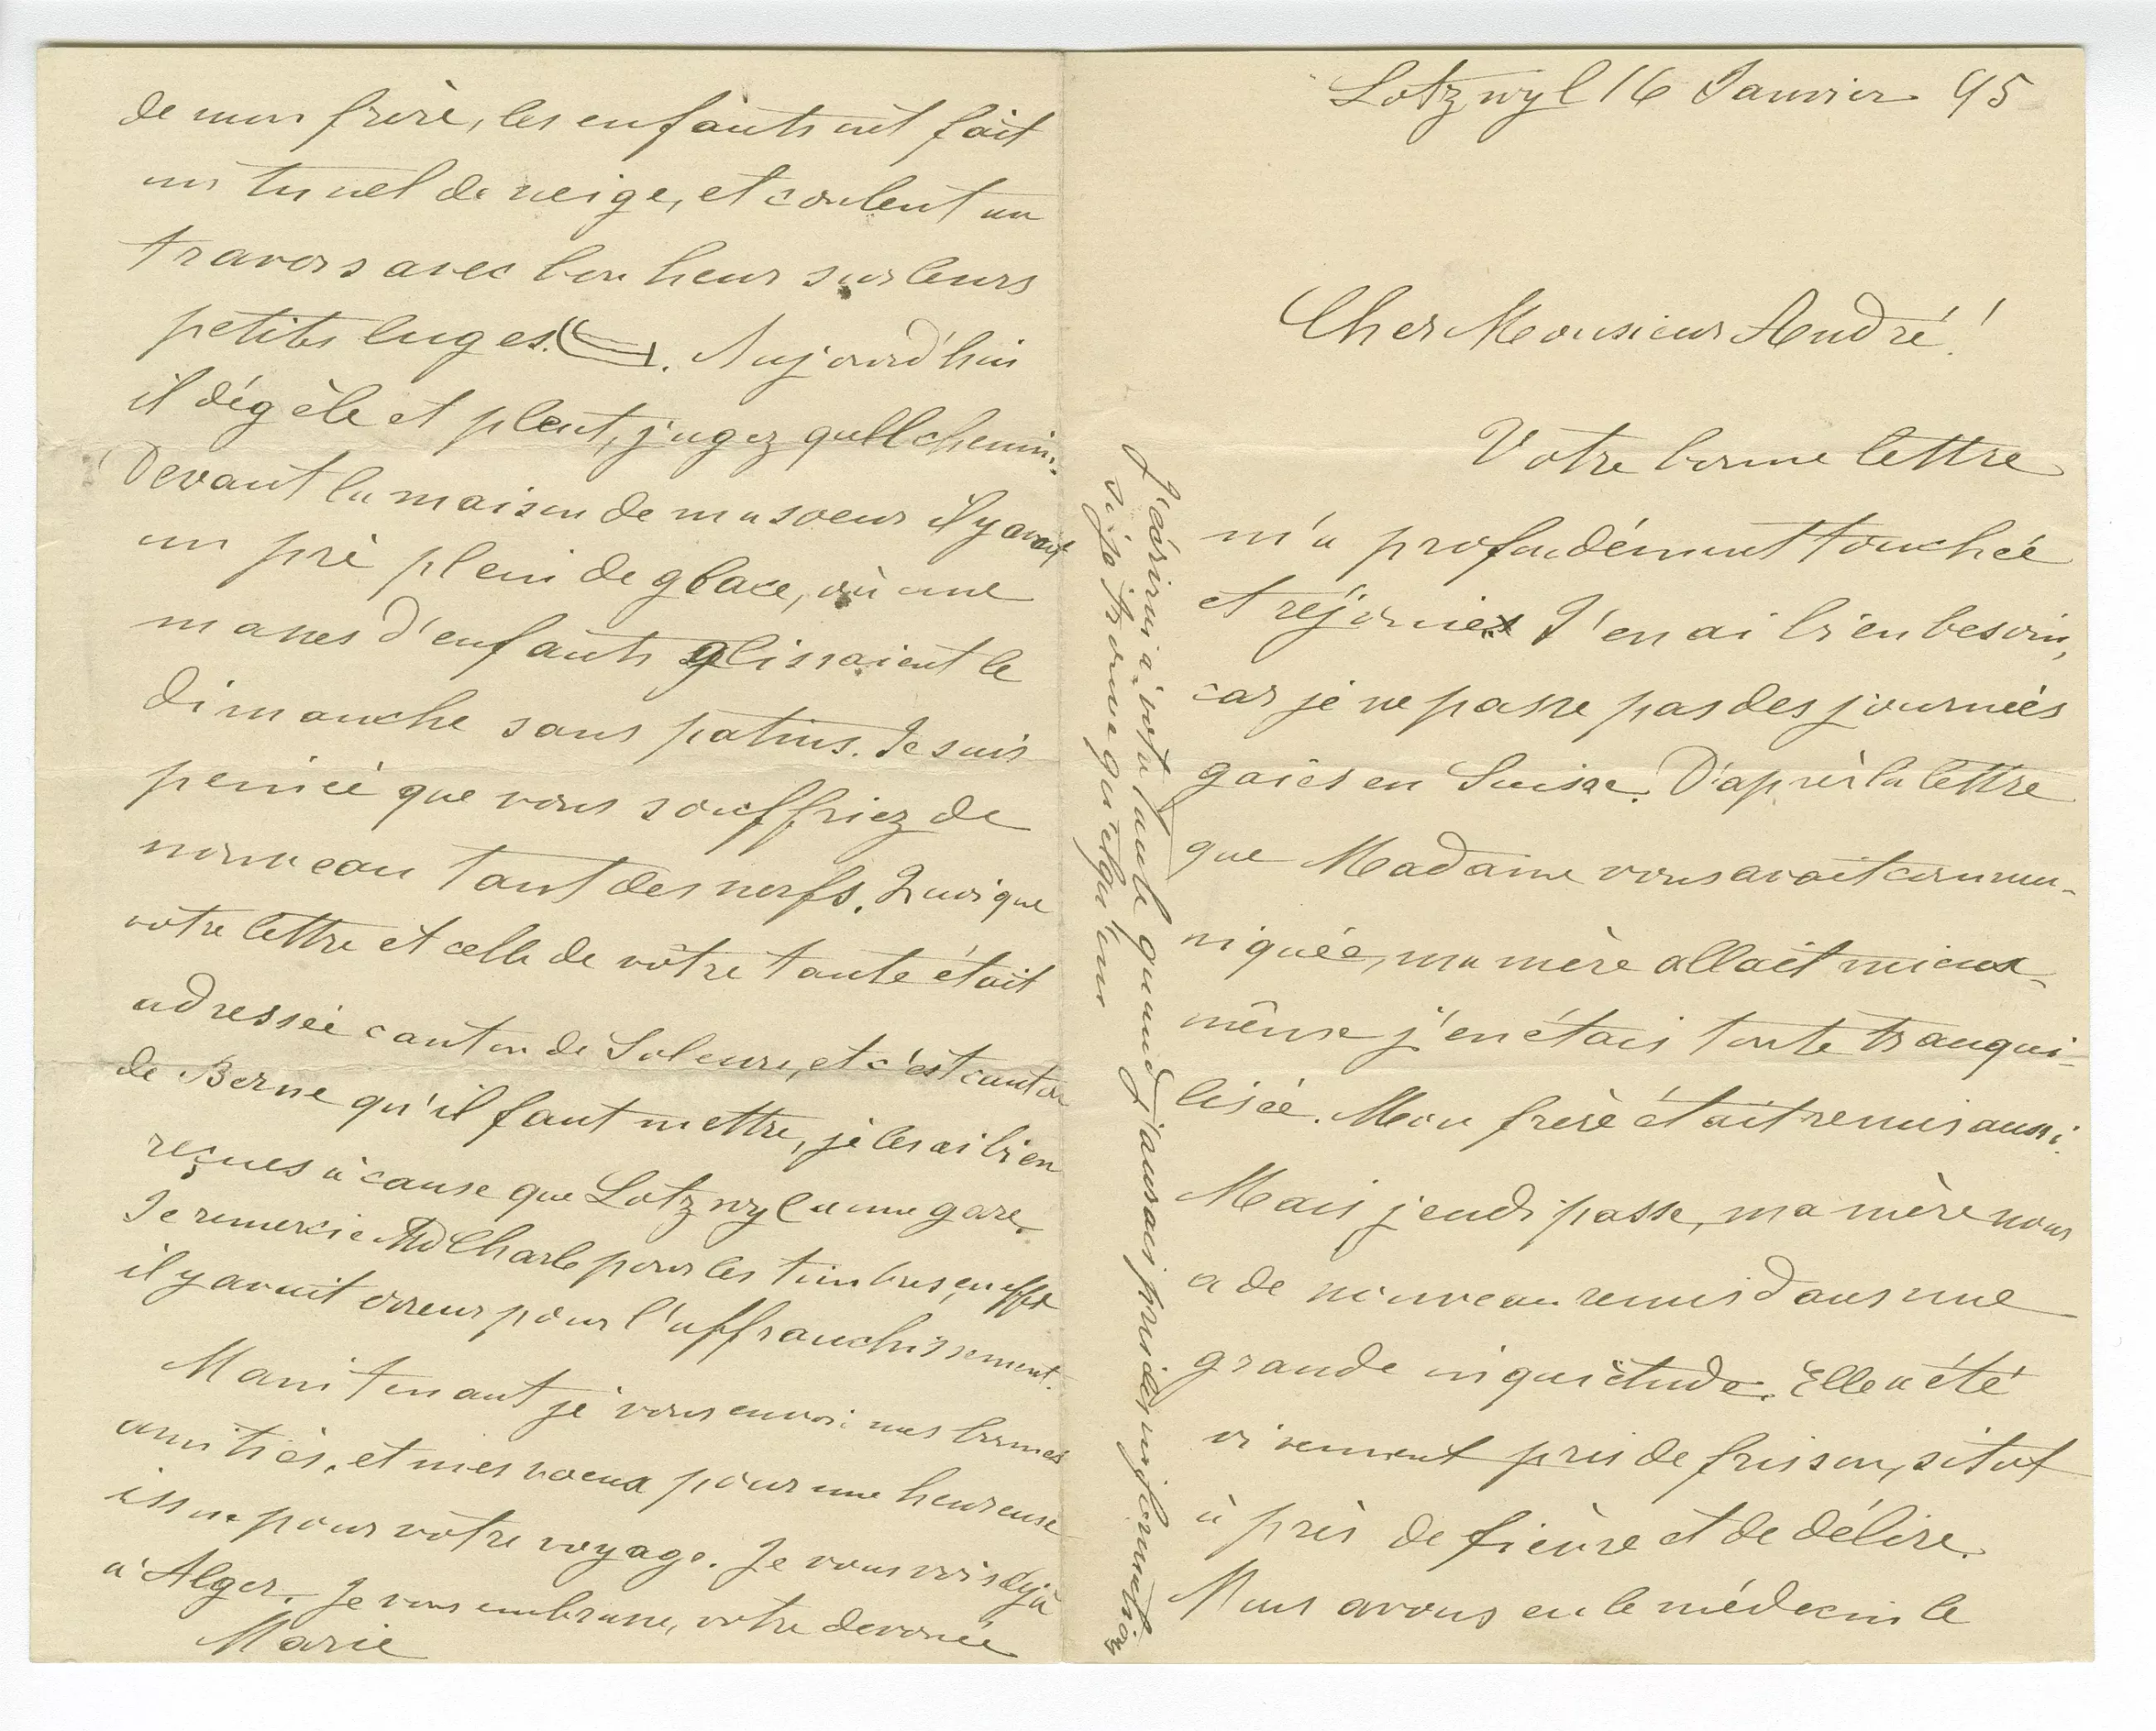 Lotzwyl 16 Janvier 95
Cher Monsieur André!
Votre bonne lettre
m'a profondément touchée
et réjouie. J'en ai bien besoin,
car je ne passe pas des journeés
gaies en Suisse. D'après la lettre
que Madame vous avait commu-
niquée, ma mère allait mieux
même j'en étais toute tranqui-
lisée. Mon frère était remis aussi.
Mais jeudi passe, ma mère nous
a de nouveau remis dans une
grande inquiétude. Elle a été
vivement pris de frisson, sitot
à près de fièvre et de délire.
Nous avons eu le médecin le
J'écrirai à votre tante quand j'aurais pris des information
si je trouve quelqu'un
de mon frère, les enfants ont fait
un tunel de neige, et coulent au
travers avec bonheur sur leurs
petites luges. Aujourd'hui
il dégèle et pleut, jugez quell chemin.
Devant la maison de ma soeur il y avait
un prè plein de glace, où une
masses d'enfants glissaient le
dimanche sans patins. Je suis
peinée que vous souffriez de
nouveau tant des nerfs. Quoique
votre lettre et celle de vôtre tante était
adresseé canton de Soleure, et c'est canton
de Berne qu'il faut mettre, je les ai bien
reçues à cause que Lotzwyl a une gare.
Je remercie Md Charle pour les timbres, en effet
il y avait erreur pour l'affranchissement.
Manitenant je vous envoi mes bonnes
amitiés, et mes voeux pour une heureuse
issue pour vôtre voyage. Je vous vois déjà
à Alger. Je vous embrasse, votre devouée
Marie